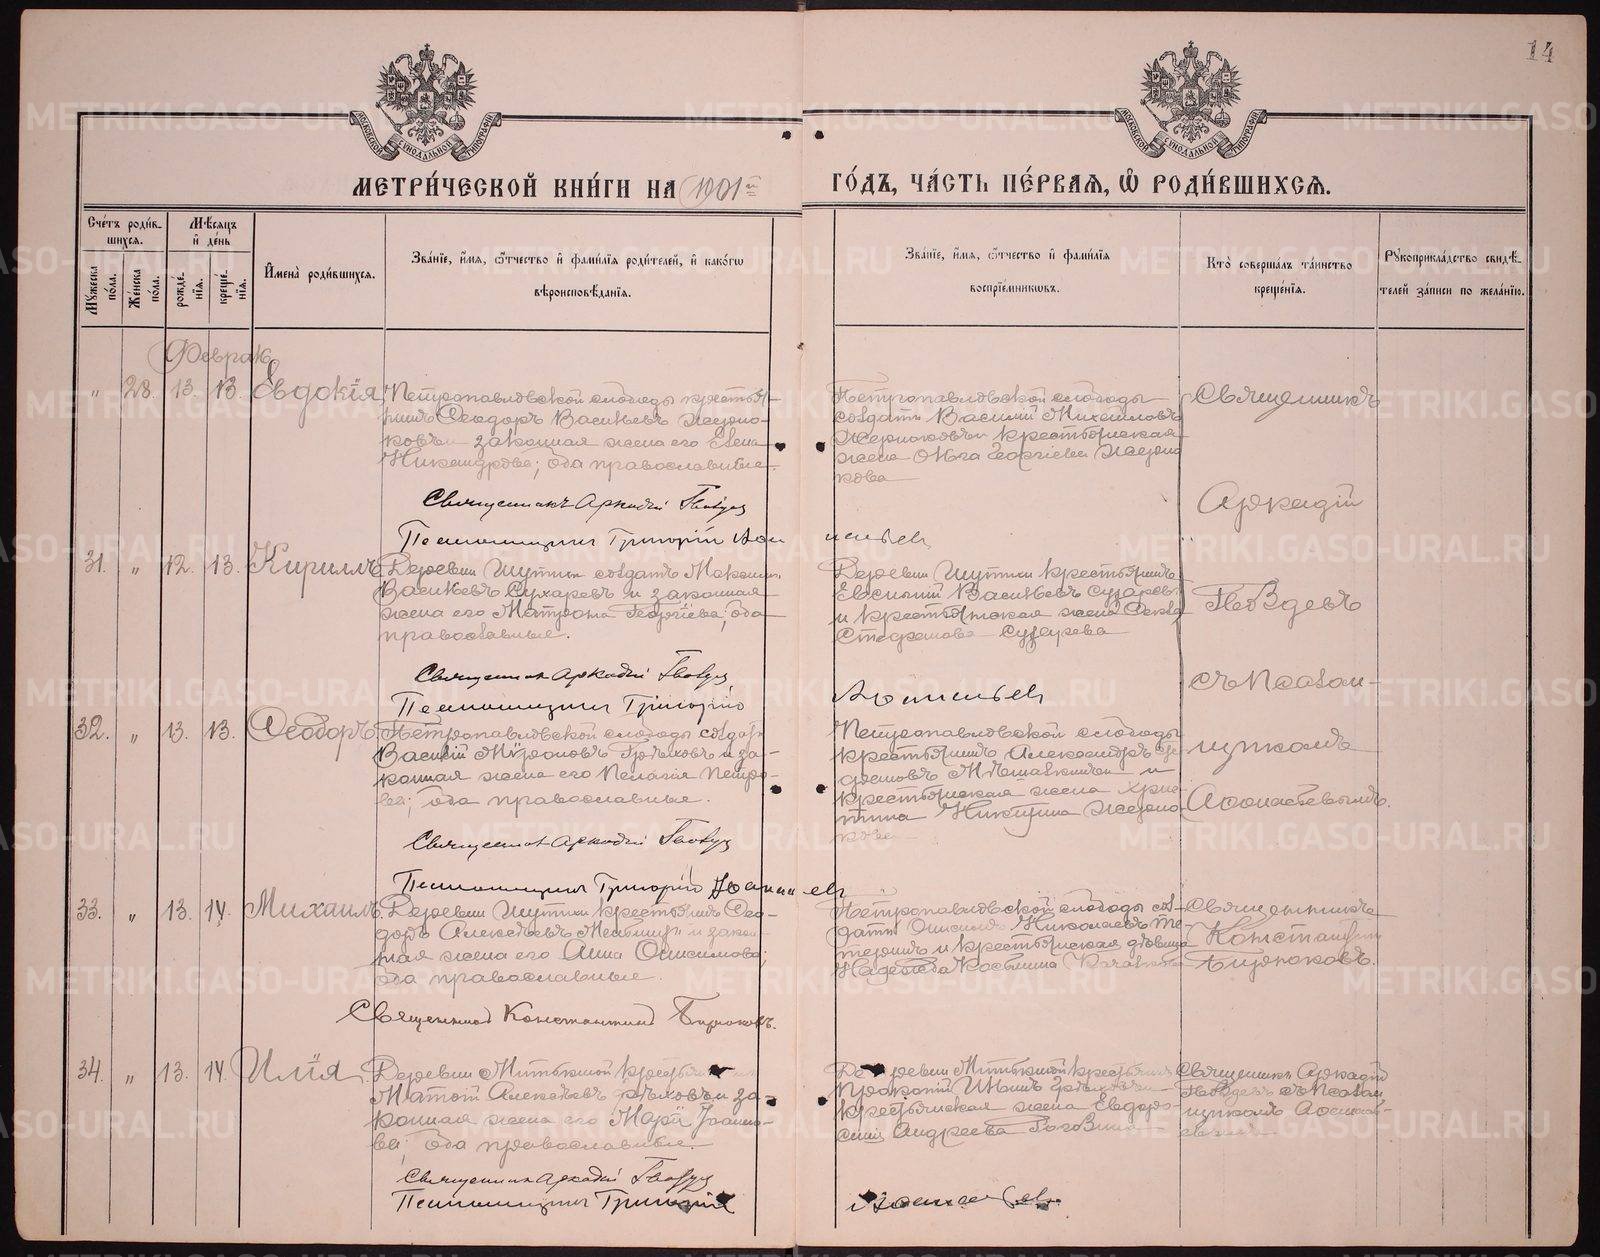 14
МЕТРИ́ЧЕСКОЙ КНИ́ГИ НА 1901й ГО́ДЪ, ЧА́СТЬ ПЕ́РВАѦ, Ѡ҆ РОДИ́ВШИХСѦ.
Сче́тъ роди́в-
шихсѧ.
Мꙋ́жеска
по́ла.
Же́нска
по́ла.
Мѣ́сѧцъ
и҆ де́нь
рожде́-
нїѧ.
креще́-
нїѧ.
И҆мена̀ роди́вшихсѧ.
Зва́нїе, и҆́мѧ, ѻ҆́тчество и҆ фами́лїѧ роди́телей, и҆ како́гѡ
вѣроисповѣ́данїѧ.
Зва́нїе, и҆́мѧ, ѻ҆́тчество и҆ фами́лїѧ
воспрїе́мникѡвъ.
Кто̀ соверша́лъ та́инство
креще́нїѧ.
Рꙋкоприкла́дство свидѣ́-
телей за́писи по жела́нїю.
Февраль
„ 28. 13. 13. Евдокія
Петропавловской слободы кресть-
янинъ Ѳеодоръ Васильевъ Жерно-
ковъ и законная жена его Елена
Никандрова; оба православные.
Священникъ Аркадій Гвоздевъ
Псаломщикъ Григорій Аѳанасьевъ
Петропавловской слободы
солдатъ Василій Михаиловъ
Жерноковъ и крестьянская
жена Ольга Георгіева Жерно
кова
Священникъ
Аркадій
Гвоздевъ
съ псалом-
щикомъ
Аѳонасьевымъ.
31. „ 12. 13. Кириллъ
Деревни Шутки солдатъ Максим
Васильевъ Сухаревъ и законная
жена его Матрона Георгіева; оба
православные.
Священникъ Аркадій Гвоздевъ
Псаломщикъ Григорій Аѳанасьевъ
Деревни Шутки крестьянинъ
Евсигній Васильевъ Сухаревъ
и крестьянская жена Ѳекла
Стефанова Сухарева
32. „ 13. 13. Ѳеодоръ
Петропавловской слободы солдатъ
Василій Мѵроновъ Грѣховъ и за-
конная жена его Пелагія Петро-
ва; оба православные.
Священникъ Аркадій Гвоздевъ
Псаломщикъ Григорій Аѳанасьевъ
Петропавловской слободы
крестьянинъ Александръ
крестьянская жена Хрис-
тина Никитина Жерно
кова
33. „ 13. 14. Михаилъ.
Деревни Шутки крестьянинъ Ѳео-
доръ Алексѣевъ и закон-
ная жена его Анна Онисимова;
оба православные.
Священникъ Константинъ Бирюковъ.
Петропавловской слободы сол-
датъ Онисимъ Николаевъ Те-
теринъ и крестьянская дѣвица
Надежда Космина
Священникъ
Константинъ
Бирюковъ.
34. „ 13. 14. Илія
Деревни Миткиной крестьянинъ
Матѳій Алексѣевъ Грѣховъ и за-
конная жена его Марія Іоанно-
ва; оба православные.
Священникъ Аркадій Гвоздевъ
Псаломщикъ Григорій Аѳанасьевъ.
Деревни Миткиной крестьянинъ
Прокопій Ильинъ Грѣховъ и
крестьянская жена Евдоро-
Андреева
Священникъ Аркадій
Гвоздевъ съ псалом
щикомъ